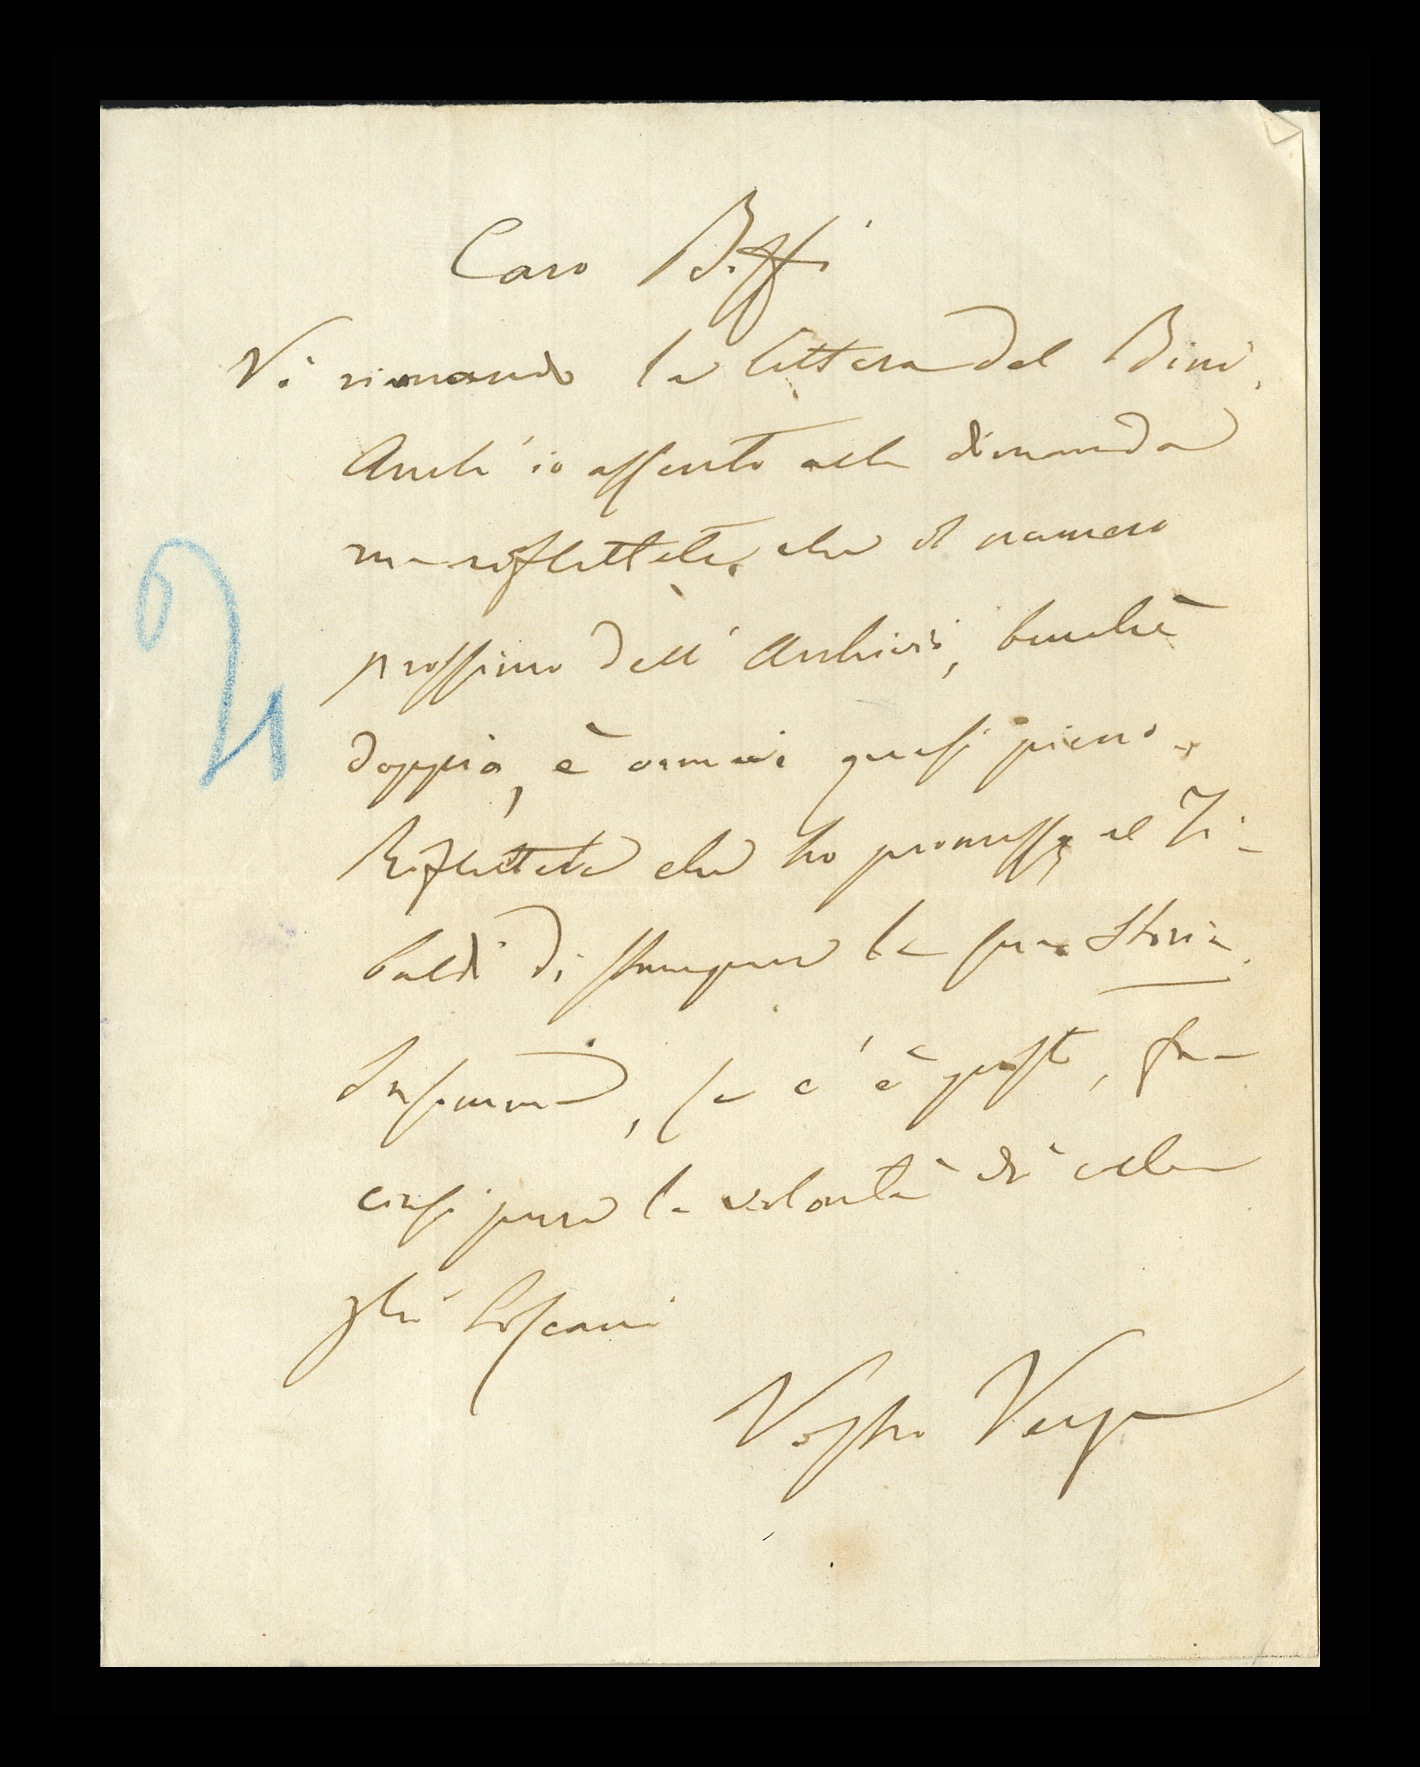 Caro Biffi
Vi rimando la lettera del Bini.
Anch'io assento alla dimanda
ma riflettete che il numero
prossimo dell'Archivio, benchè
doppio, è ormai quasi pieno.
Riflettete che ho promesso al Ti-
baldi di stampare la sua Storia.
Insomma, se c'è posto, fac-
ciasi pure la volontà di
gli Toscani
Vostro Verga